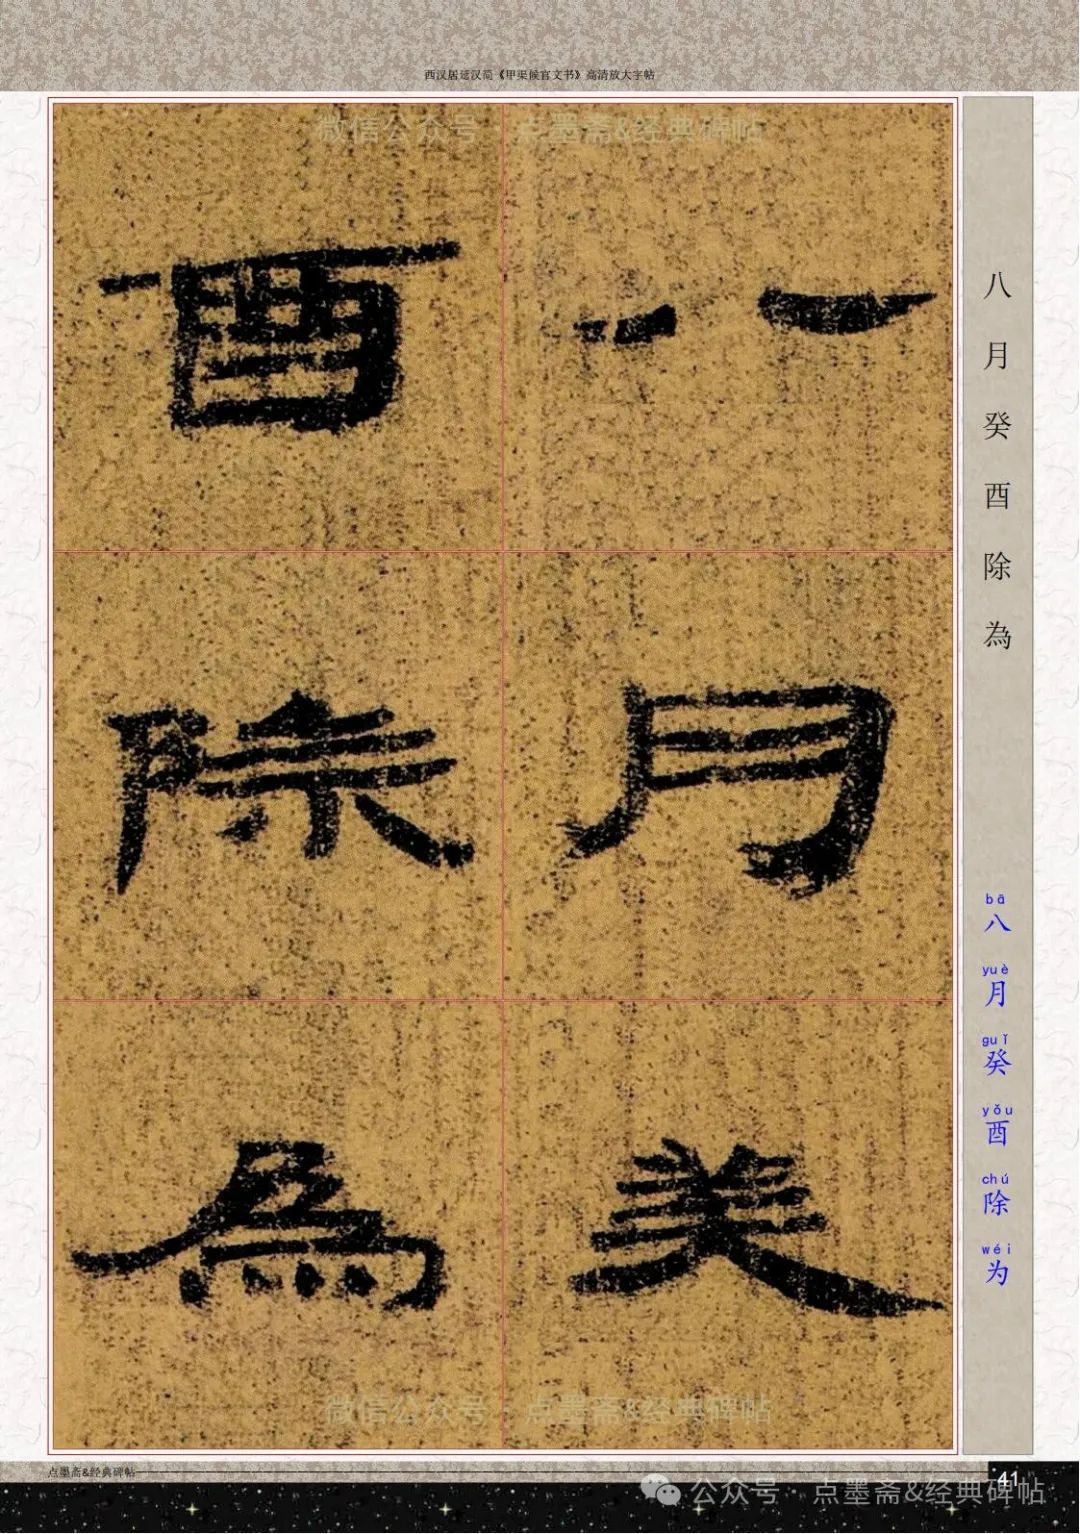 西汉居延汉简《甲渠候官文书》高清放大字帖
微信公众号·点墨斋&经典碑帖
八月癸
酉除為
八月癸酉除為
bā yuè guǐ yǒu chú wéi
八月癸酉除为
微信公众号·点墨斋&经典碑帖
点墨斋&经典碑帖
41
公众号·点墨斋&经典碑帖